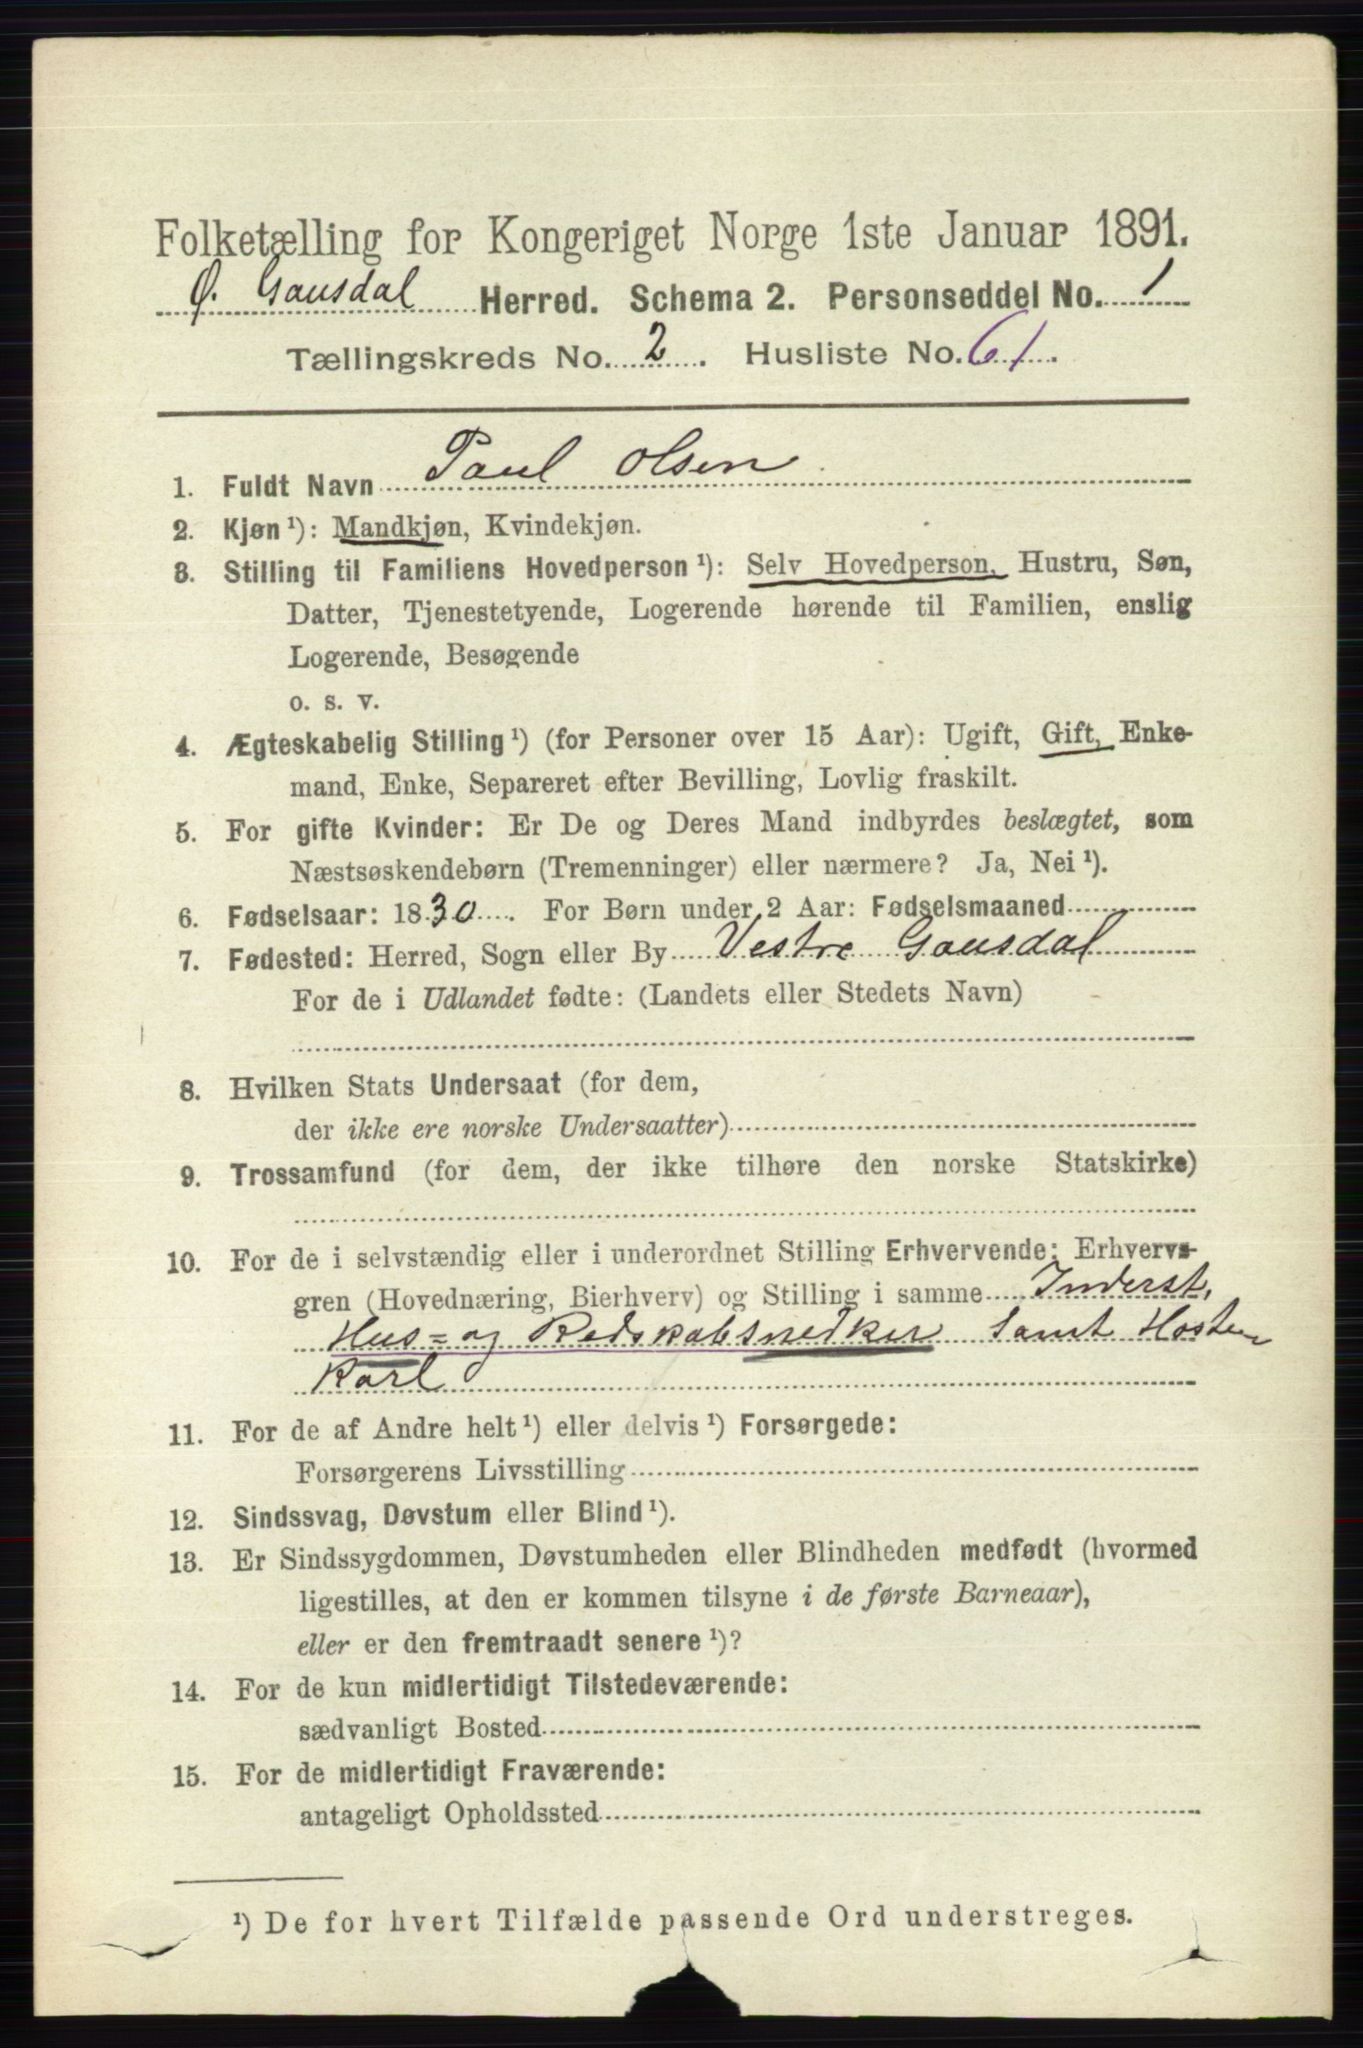 Folketælling for Kongeriget Norge 1ste Januar 1891.
Ø. Gausdal Herred. Schema 2. Personseddel No. 1
Tællingskreds No. 2. Husliste No. 61.
1. Fuldt Navn Paul Olsen
2. Kjøn ¹): Mandkjøn, Kvindekjøn.
3. Stilling til Familiens Hovedperson ¹): Selv Hovedperson, Hustru, Søn,
Datter, Tjenestetyende, Logerende hørende til Familien, enslig
Logerende, Besøgende
o. s. v.
4. Ægteskabelig Stilling ¹) (for Personer over 15 Aar): Ugift, Gift, Enke-
mand, Enke, Separeret efter Bevilling, Lovlig fraskilt.
5. For gifte Kvinder: Er De og Deres Mand indbyrdes beslægtet, som
Næstsøskendebørn (Tremenninger) eller nærmere? Ja, Nei ¹).
6. Fødselsaar: 1830. For Børn under 2 Aar: Fødselsmaaned
7. Fødested: Herred, Sogn eller By Vestre Gausdal
For de i Udlandet fødte: (Landets eller Stedets Navn)
8. Hvilken Stats Undersaat (for dem,
der ikke ere norske Undersaatter)
9. Trossamfund (for dem, der ikke tilhøre den norske Statskirke)
10. For de i selvstændig eller i underordnet Stilling Erhvervende: Erhvervs-
gren (Hovednæring, Bierhverv) og Stilling i samme Inderst,
Hus- og Redskabsnedker Samt
Karl
11. For de af Andre helt ¹) eller delvis ¹) Forsørgede:
Forsørgerens Livsstilling
12. Sindssvag, Døvstum eller Blind ¹).
13. Er Sindssygdommen, Døvstumheden eller Blindheden medfødt (hvormed
ligestilles, at den er kommen tilsyne i de første Barneaar),
eller er den fremtraadt senere ¹)?
14. For de kun midlertidigt Tilstedeværende:
sædvanligt Bosted
15. For de midlertidigt Fraværende:
antageligt Opholdssted
¹) De for hvert Tilfælde passende Ord understreges.